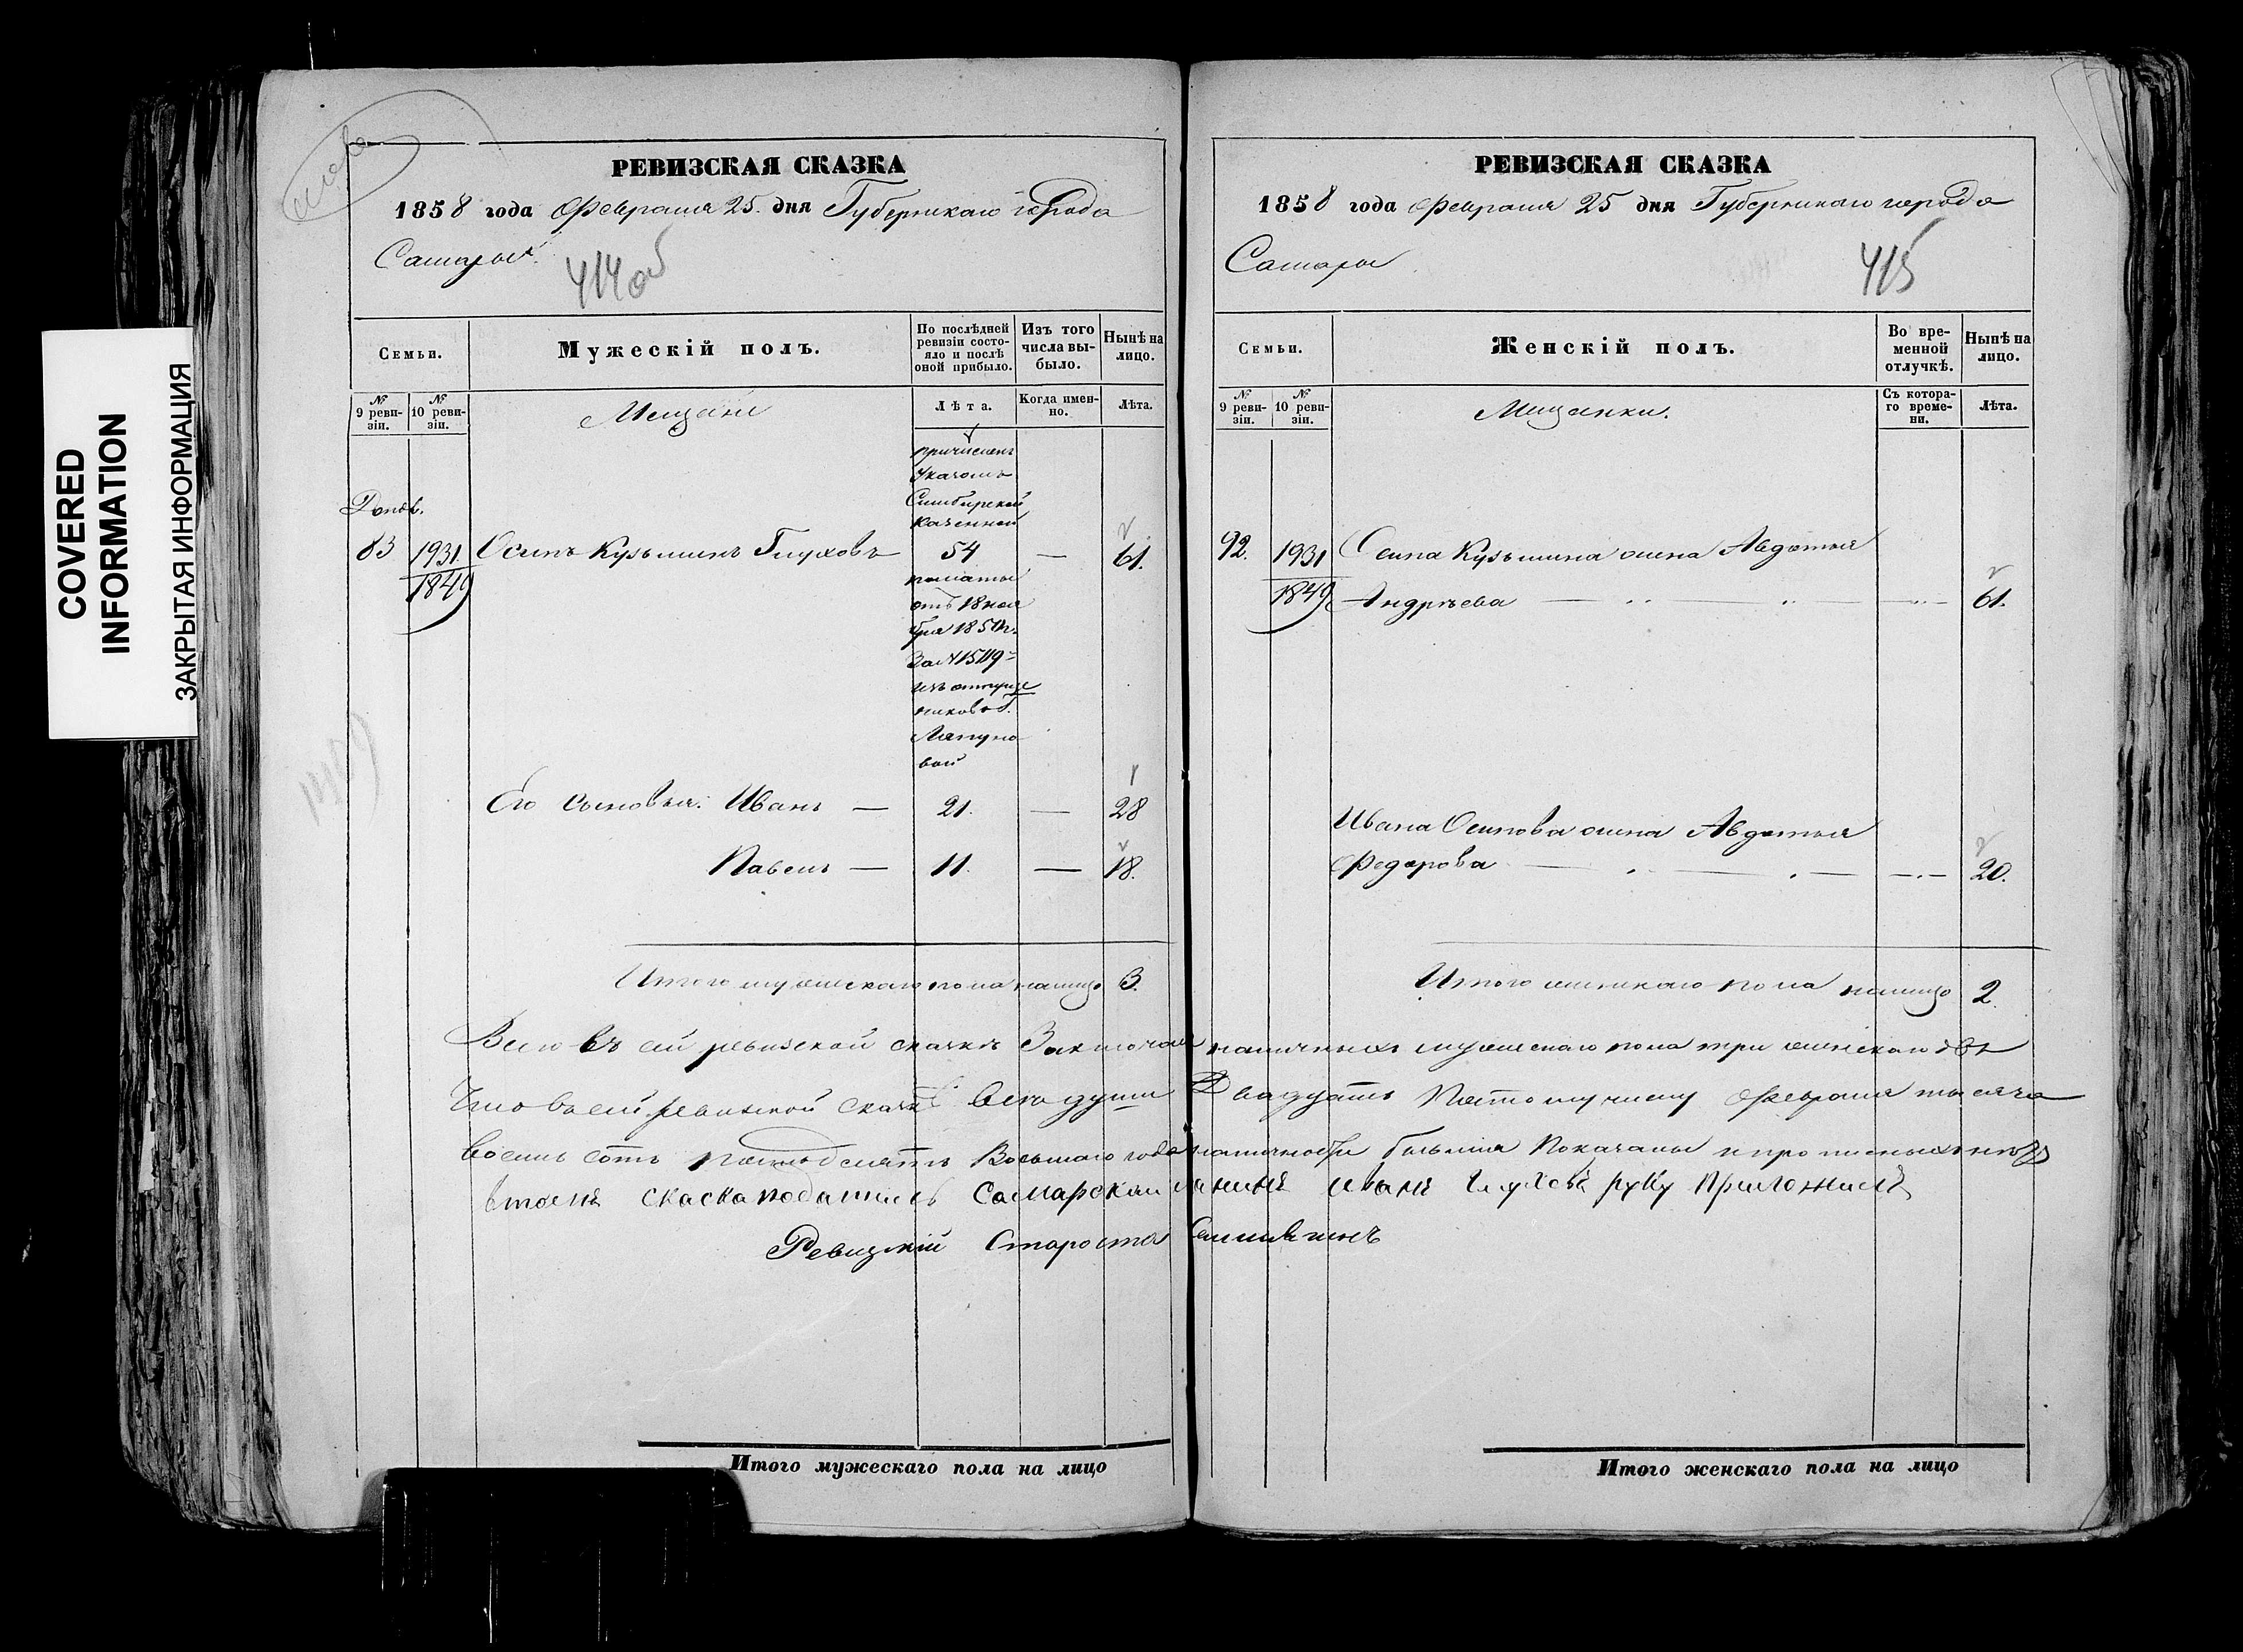 COVERED
INFORMATION
ЗАКРЫТАЯ ИНФОРМАЦИЯ
РЕВИЗСКАЯ СКАЗКА
1858 года Февраля 25. дня Губернскаго города
Самары
414 об
Семьи.
Мужескій полъ.
По послѣдней ревизіи состояло и послѣ оной прибыло.
Изъ того числа выбыло.
Нынѣ на лицо.
№ 9 ревизіи.
№ 10 ревизіи.
Мещане
Лѣта.
Когда именно.
Лѣта.
причисленъ
указомъ
Симбирской
казенной
83 1931 Осипъ Кузьминъ Глуховъ 54 — 61.
1849
палаты
отъ 18 ноя
бря 1850 г.
за № 15119
изъ отпуще
никовъ г.
Ляпуно
вой
Его сыновья: Иванъ — 21. — 28
Павелъ — 11. — 18.
Итого мужескаго пола налицо 3.
РЕВИЗСКАЯ СКАЗКА
1858 года Февраля 25 дня Губернскаго города
Самары
415
Семьи.
Женскій полъ.
Во временной отлучкѣ.
Нынѣ на лицо.
№ 9 ревизіи.
№ 10 ревизіи.
Мещанки.
Съ котораго времени.
Лѣта.
92. 1931 Осипа Кузьмина жена Авдотья
1849 Андрѣева 61.
Ивана Осипова жена Авдотья
Федорова 20.
Итого женскаго пола налицо 2.
Всего въ сей ревизской сказкѣ наличныхъ мужескаго пола три женскаго двѣ
Что въ сей ревизской сказкѣ все души Двадцать Пятому числу Февраля тысяча
восемь сотъ пятьдесятъ Восьмаго года показаны и прописныхъ нѣтъ
втомъ скаска Самарскаи иванъ глуховъ руку приложилъ
Ревизкій Староста
Итого мужескаго пола на лицо
Итого женскаго пола на лицо